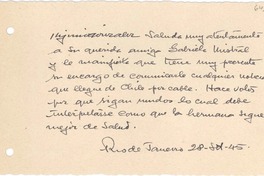 Higinio González Saluda muy atentamente
a su querida amiga Gabriela Mistral
y le manifiesta que tiene muy presente
su encargo de comunicarle cualquier noticia
que llegue de Chile por cable. Hace votos
por que sigan mudos lo cual debe
interpretarse como que la hermana sigue
mejor de salud.
Rio de Janeiro 28-XI-45.